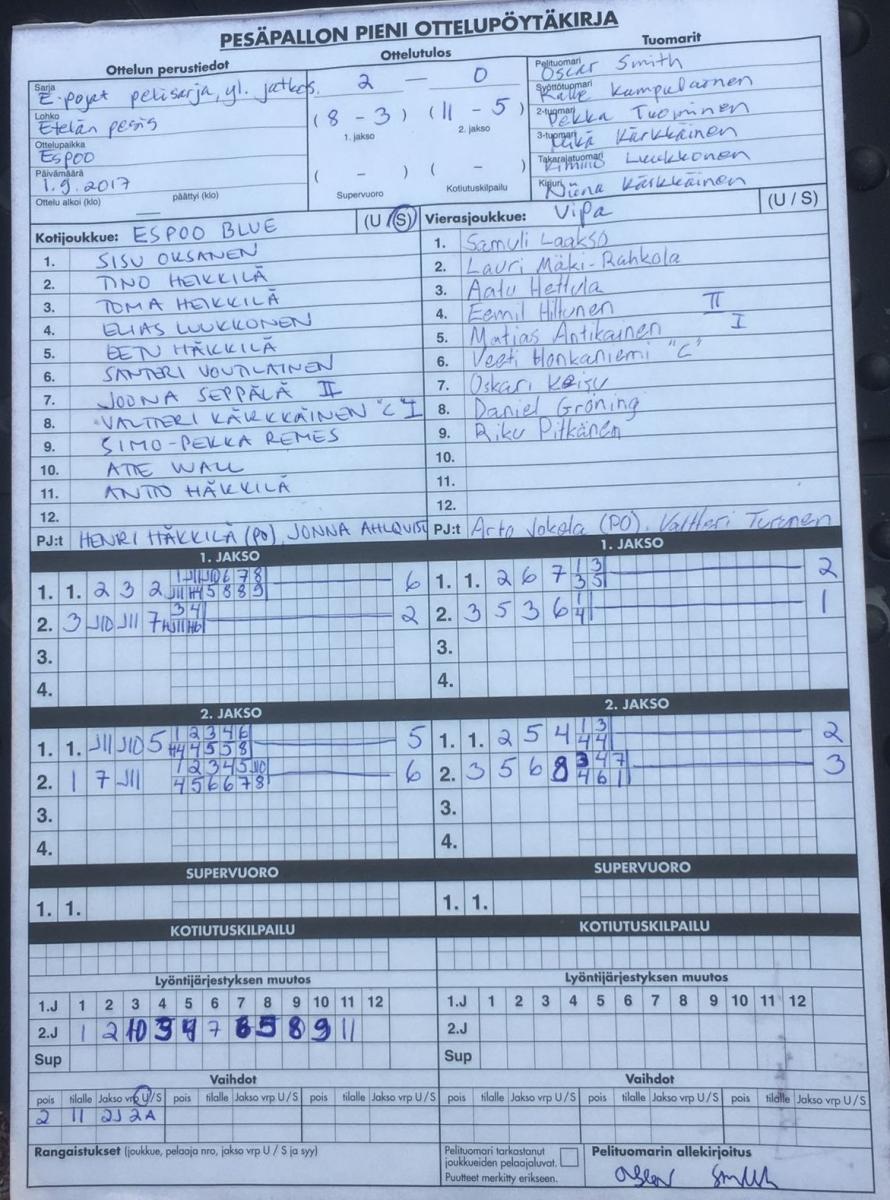 PESÄPALLON PIENI OTTELUPÖYTÄKIRJA
Ottelun perustiedot
Sarja
E-pojat pelisarja, yl. jatkos.
Lohko
Etelän pesis
Ottelupaikka
Espoo
Päivämäärä
1.9.2017
Ottelu alkoi (klo) päättyi (klo)
Ottelutulos
2 — 0
(8 - 3) (11 - 5)
1. jakso 2. jakso
( - ) ( - )
Supervuoro Kotiutuskilpailu
Tuomarit
Pelituomari
Oscar Smith
Syöttötuomari
Kalle Kumpulainen
2-tuomari
Pekka Tuominen
3-tuomari
Kärkkäinen
Takarajatuomari
Kimmo Luukkonen
Kirjuri
Niina Kärkkäinen
Kotijoukkue: ESPOO BLUE (U/S)
1. SISU OKSANEN
2. TINO HEIKKILÄ
3. TOMA HEIKKILÄ
4. ELIAS LUUKKONEN
5. EETU HÄKKILÄ
6. SANTERI VOUTILAINEN
7. JOONA SEPPÄLÄ II
8. VALTTERI KÄRKKÄINEN "C" I
9. SIMO-PEKKA REMES
10. ATTE WALL
11. ANTTO HÄKKILÄ
12.
PJ:t HENRI HÄKKILÄ (PO), JONNA AHLQVIST
Vierasjoukkue: ViPa (U/S)
1. Samuli Laakso
2. Lauri Mäki-Rahkola
3. Aatu Hettula
4. Eemil Hiltunen II
5. Matias Antikainen I
6. Veeti Honkaniemi "C"
7. Oskari Keisu
8. Daniel Gröning
9. Riku Pitkänen
10.
11.
12.
PJ:t Arto Jokela (PO), Valtteri Turunen
1. JAKSO
1. 1. 2 3 2 6
2. 3 J10 J11 7 2
3.
4.
1. JAKSO
1. 1. 2 6 7 1 3 2
3 5
2. 3 5 3 6 1 1
4
3.
4.
2. JAKSO
1. 1. J11 J10 5 1 2 3 4 6 5
H4 4 5 5 8
2. 1 7 J11 1 2 3 4 5 J10 6
4 5 6 6 7 8
3.
4.
2. JAKSO
1. 1. 2 5 4 1 3 2
4 4
2. 3 5 6 8 3 4 7 3
4 6 1
3.
4.
SUPERVUORO
1. 1.
SUPERVUORO
1. 1.
KOTIUTUSKILPAILU
KOTIUTUSKILPAILU
Lyöntijärjestyksen muutos
1.J 1 2 3 4 5 6 7 8 9 10 11 12
2.J 1 2 10 3 4 7 6 5 8 9 11
Sup
Lyöntijärjestyksen muutos
1.J 1 2 3 4 5 6 7 8 9 10 11 12
2.J
Sup
Vaihdot
pois tilalle Jakso vrp U/S pois tilalle Jakso vrp U/S pois tilalle Jakso vrp U/S
2 11 2J 2A
Vaihdot
pois tilalle Jakso vrp U/S pois tilalle Jakso vrp U/S pois tilalle Jakso vrp U/S
Rangaistukset (joukkue, pelaaja nro, jakso vrp U / S ja syy)
Pelituomari tarkastanut
joukkueiden pelaajaluvat.
Puutteet merkitty erikseen.
Pelituomarin allekirjoitus
Oscar Smith